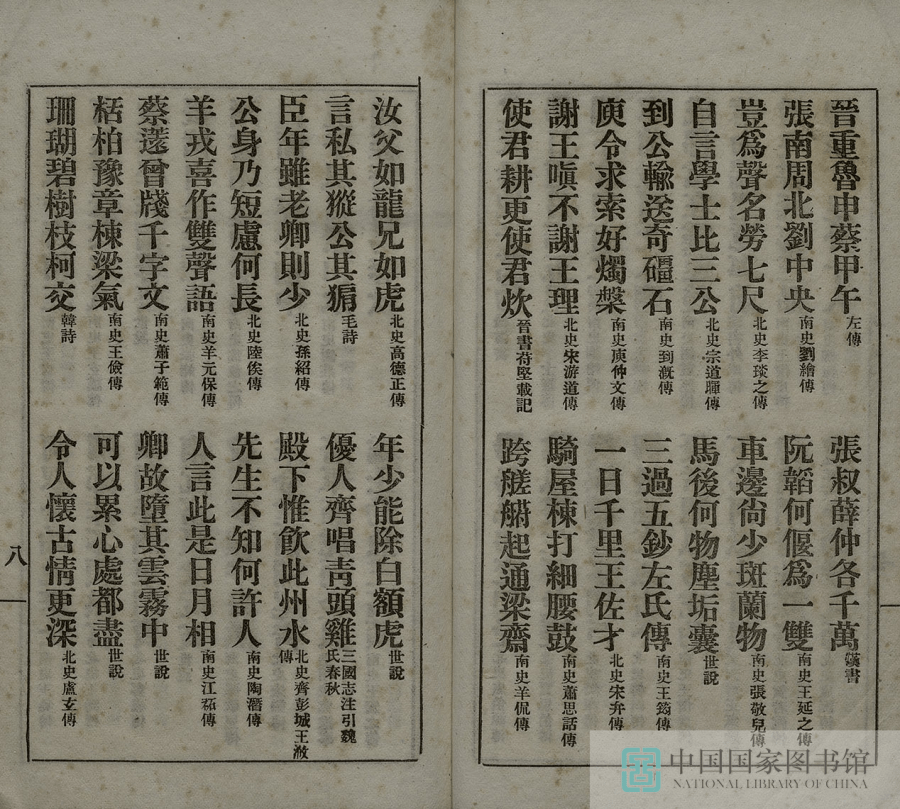 晉重魯申蔡甲午左傳　張叔薛仲各千萬漢書
張南周北劉中央南史劉繪傳　阮韜何偃爲一雙南史王延之傳
豈爲聲名勞七尺北史李琰之傳　車邊尙少斑蘭物南史張敬兒傳
自言學士比三公北史宗道暉傳　馬後何物塵垢囊世說
到公輸送奇礓石南史到溉傳　三過五鈔左氏傳南史王筠傳
庾令求索好燭槃南史庾仲文傳　一日千里王佐才北史宋弁傳
謝王嗔不謝王理北史宋游道傳　騎屋棟打細腰鼓南史蕭思話傳
使君耕更使君炊晉書苻堅載記　跨艖䑰起通梁齋南史羊侃傳
汝父如龍兄如虎北史高德正傳　年少能除白額虎世說
言私其豵公其豜毛詩　優人齊唱靑頭雞三國志注引魏氏春秋
臣年雖老卿則少北史孫紹傳　殿下惟飮此州水北史齊彭城王浟傳
公身乃短慮何長北史陸俟傳　先生不知何許人南史陶潛傳
羊戎喜作雙聲語南史羊元保傳　人言此是日月相南史江祏傳
蔡薳曾牋千字文南史蕭子範傳　卿故墮其雲霧中世說
栝柏豫章棟梁氣南史王儉傳　可以累心處都盡世說
珊瑚碧樹枝柯交韓詩　令人懷古情更深北史盧玄傳
八
中国国家图书馆
NATIONAL LIBRARY OF CHINA